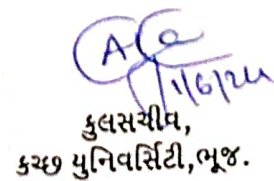 1/6/24
કુલસચીવ,
કચ્છ યુનિવર્સિટી,ભૂજ.